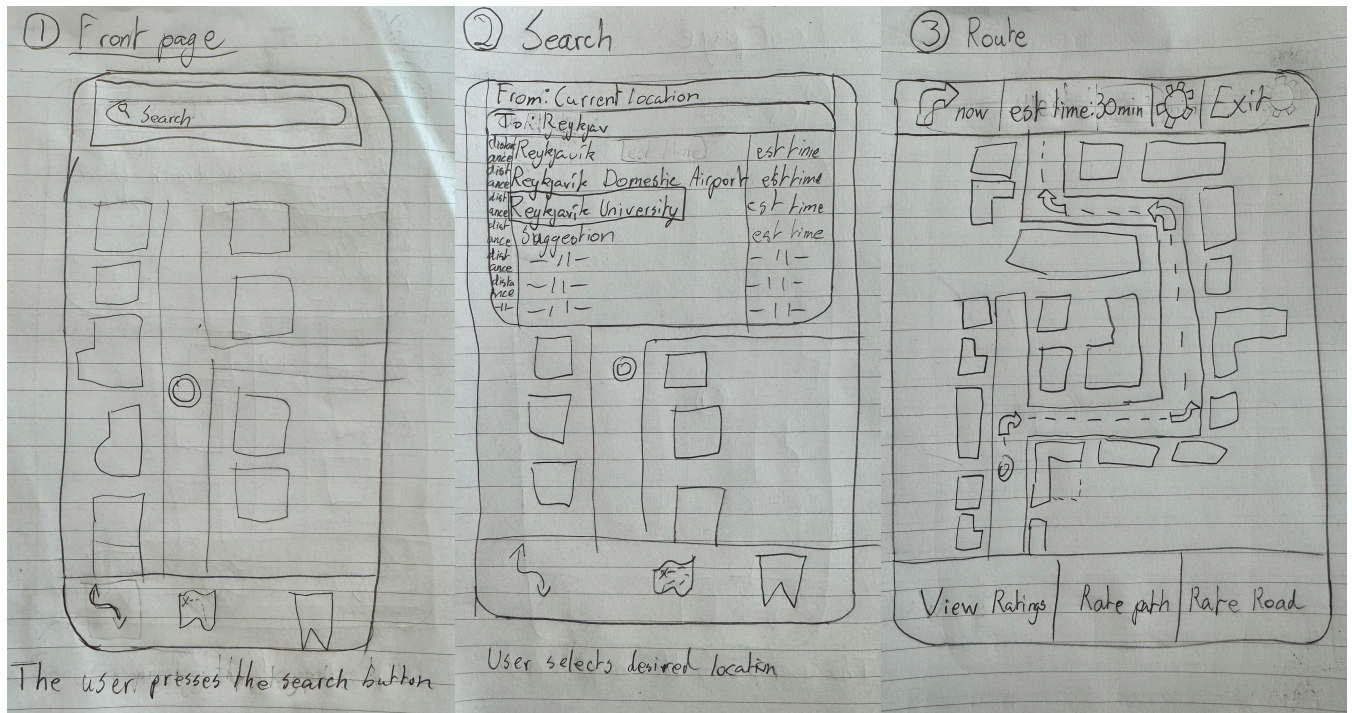 ① Front page
Search
The user presses the search button
② Search
From: Current location
To: Reykjav
distance Reykjavík est time
distance Reykjavík Domestic Airport est time
distance Reykjavík University est time
distance Suggestion est time
distance -11- -11-
distance -11- -11-
-11- -11- -11-
User selects desired location
③ Route
now est time: 30min Exit
View Ratings Rate path Rate Road